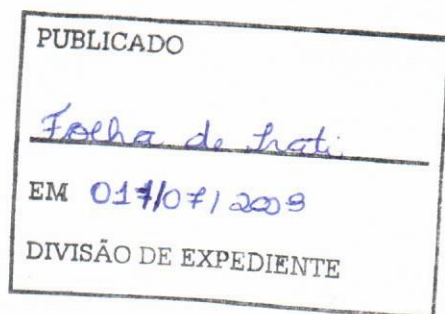 PUBLICADO
Folha de Irati
EM 01/07/2009
DIVISÃO DE EXPEDIENTE